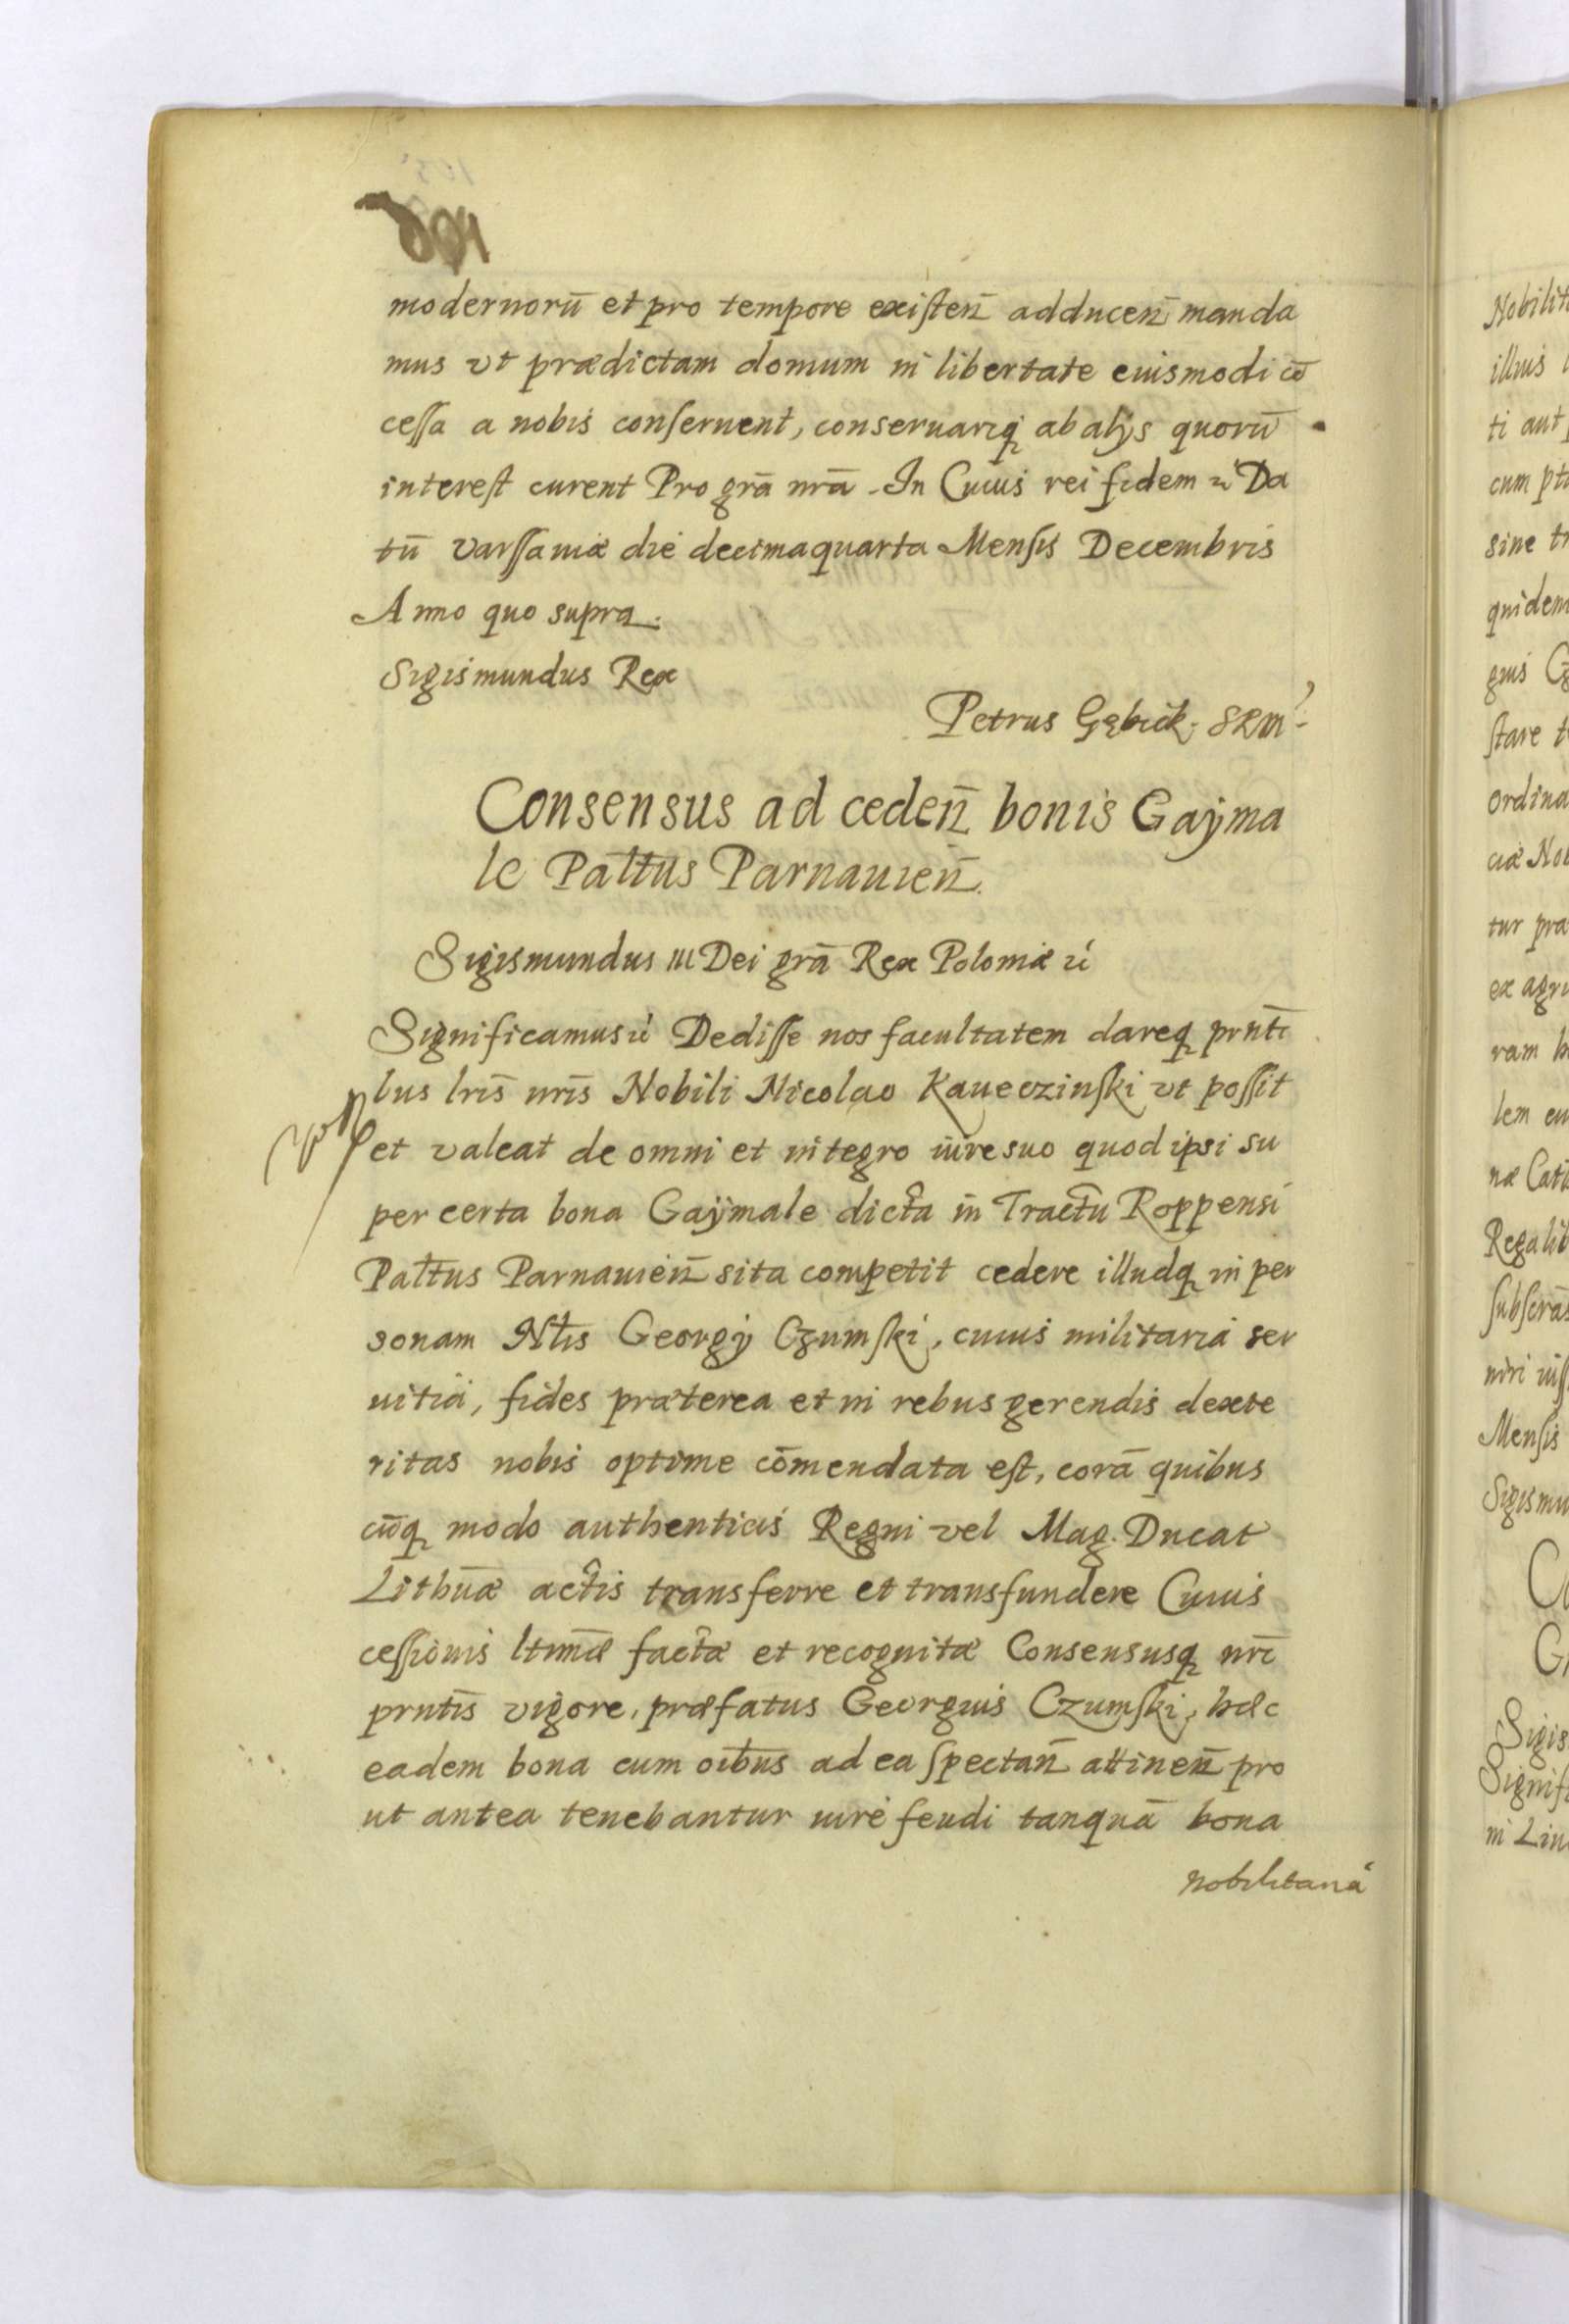 modernorū et pro tempore existen̄ adducen̄ manda
mus vt prædictam domum in libertate eiusmodi cō
cessa a nobis conseruent, conseruariq́ ab alijs quorū
interest curent Pro grā nrā. In Cuius rei fidem Da
tū Varssauiæ die decimaquarta Mensis Decembris
Anno quo supra.
Sigismundus Rex
Petrus Gębick. SRM
Consensus ad ceden̄ bonis Gaÿma
le Pallūs Parnauien̄.
Sigismundus III Dei grā Rex Poloniæ
Significamus Dedisse nos facultatem dareq prntī
bus lrīs nrīs Nobili Nicolao Kaueczinski vt possit
et valeat de omni et integro iure suo quod ipsi su
per certa bona Gaÿmale dicta in Tractu Roppensi
Palltūs Parnauien̄ sita competit cedere illudq in per
sonam Nlis Georgij Czumski, cuius militaria ser
uitia, fides præterea et in rebus gerendis dexte
ritas nobis optime cōmendata est, corā quibus
cūq modo authenticis Regni vel Mag. Ducat
Lithūæ actis transferre et transfundere Cuius
cessionis ltimæ factæ et recognitæ Consensusq nrī
prntīs vigore, præfatus Georgius Czumski, hæc
eadem bona cum oibus ad ea spectan̄ attinen̄ pro
ut antea tenebantur iure feudi tanquā bona
nobilitaria
Nobilit
illius
ti aut
cum
sine tr
quidem
gius Cz
stare t
ordina
ciæ Nob
tur præ
ex agri
ram
lem eu
næ
Regalib
subscrā
Mensis
Sigismu
Sigis
Signifi
in Liu